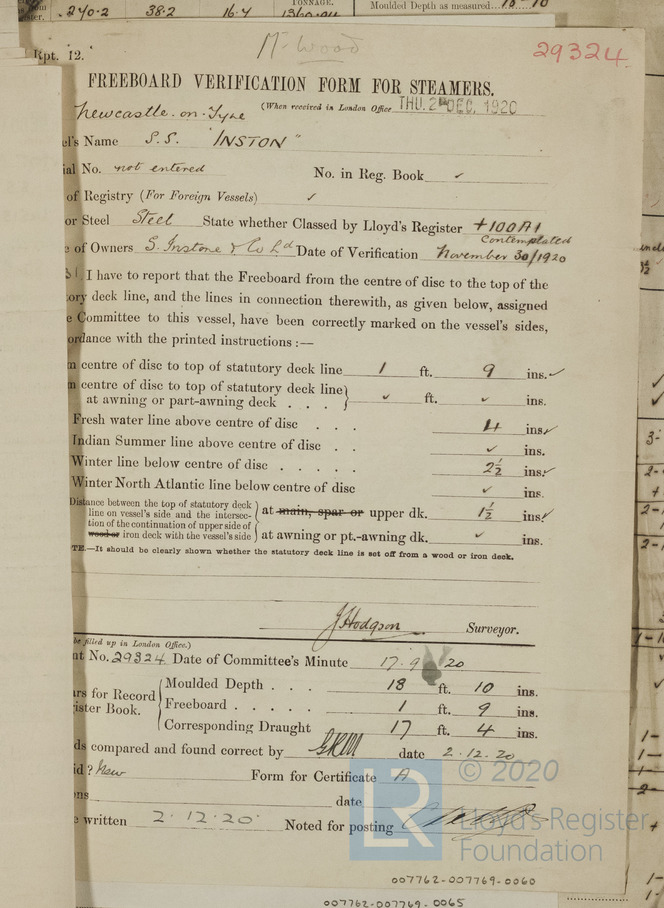 240.2 38.2 16.4 TONNAGE. 1360.04 Moulded Depth as measured
Rpt. 12.
Mr Wood
29324
FREEBOARD VERIFICATION FORM FOR STEAMERS.
Newcastle-on-Tyne (When received in London Office THU. 2 DEC. 1920
el's Name S.S. "INSTON"
ial No. not entered No. in Reg. Book ✓
of Registry (For Foreign Vessels) ✓
or Steel Steel State whether Classed by Lloyd's Register +100A1
Contemplated
e of Owners S. Instone & Co Ld Date of Verification November 30/1920
I have to report that the Freeboard from the centre of disc to the top of the
ory deck line, and the lines in connection therewith, as given below, assigned
e Committee to this vessel, have been correctly marked on the vessel's sides,
ordance with the printed instructions :—
m centre of disc to top of statutory deck line 1 ft. 9 ins. ✓
m centre of disc to top of statutory deck line
at awning or part-awning deck . . . ✓ ft. ✓ ins.
Fresh water line above centre of disc . . . 4 ins. ✓
Indian Summer line above centre of disc . . ✓ ins.
Winter line below centre of disc . . . . . 2½ ins. ✓
Winter North Atlantic line below centre of disc ✓ ins.
Distance between the top of statutory deck
line on vessel's side and the intersec-
tion of the continuation of upper side of
wood or iron deck with the vessel's side
at main, spar or upper dk. 1½ ins. ✓
at awning or pt.-awning dk. ✓ ins.
TE.—It should be clearly shown whether the statutory deck line is set off from a wood or iron deck.
J Hodgson Surveyor.
be filled up in London Office.)
nt No. 29324 Date of Committee's Minute 17.9 20
rs for Record
ister Book.
Moulded Depth . . . 18 ft. 10 ins.
Freeboard . . . . . 1 ft. 9 ins.
Corresponding Draught 17 ft. 4 ins.
ds compared and found correct by date 2.12.20
id? New Form for Certificate A
ns date
e written 2.12.20 Noted for posting
LR
© 2020
Lloyd's Register
Foundation
007762-007769-0060
007762-007769-0065